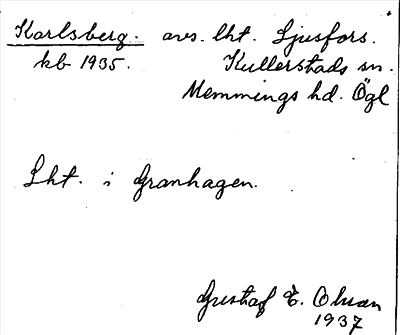 Karlsberg. avs. lht. Ljusfors.
kb 1935. Kullerstads sn.
Memmings hd. Ögl
Lht. i Granhagen.
Gustaf E. Olsson
1937